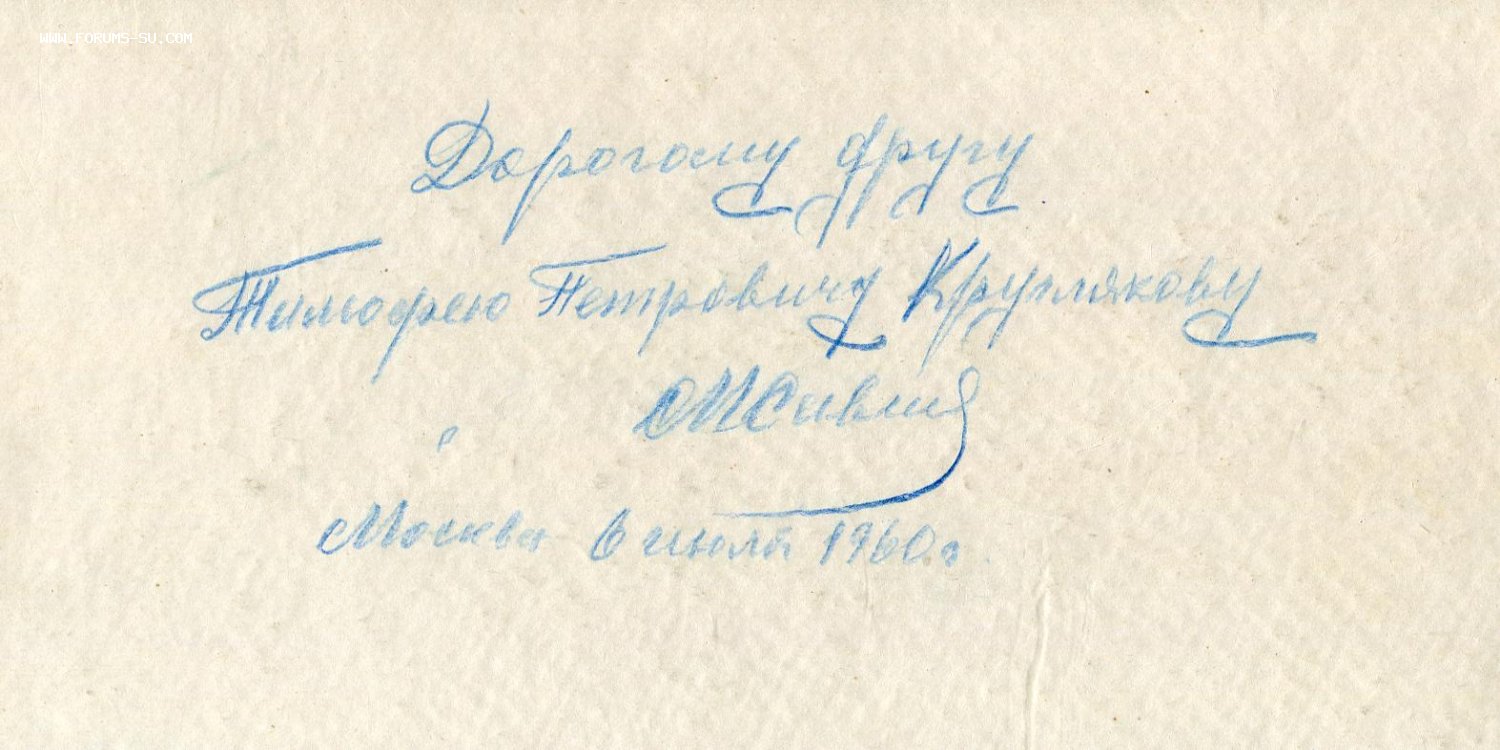 WWW.FORUMS-SU.COM
Дорогому другу
Тимофею Петровичу Круглякову
Москва 6 июля 1960 г.